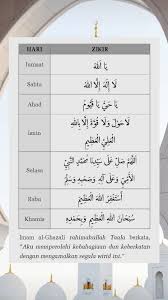 HARI ZIKIR
Jumaat يَا اَللهُ
Sabtu لَا إِلَهَ إِلَّا اللهُ
Ahad يَا حَيُّ يَا قَيُّوْمُ
Isnin لَا حَوْلَ وَلَا قُوَّةَ إِلَّا بِاللهِ
الْعَلِيِّ الْعَظِيْمِ
Selasa اَللَّهُمَّ صَلِّ عَلَى سَيِّدِنَا مُحَمَّدٍ النَّبِيِّ
الْأُمِّيِّ وَعَلَى آلِهِ وَصَحْبِهِ وَسَلِّمْ
Rabu أَسْتَغْفِرُ اللهَ الْعَظِيْمَ
Khamis سُبْحَانَ اللهِ الْعَظِيْمِ وَبِحَمْدِهِ
Imam al-Ghazali rahimahullah Taala berkata,
"Aku memperolehi kebahagiaan dan keberkatan
dengan mengamalkan segala wirid ini."